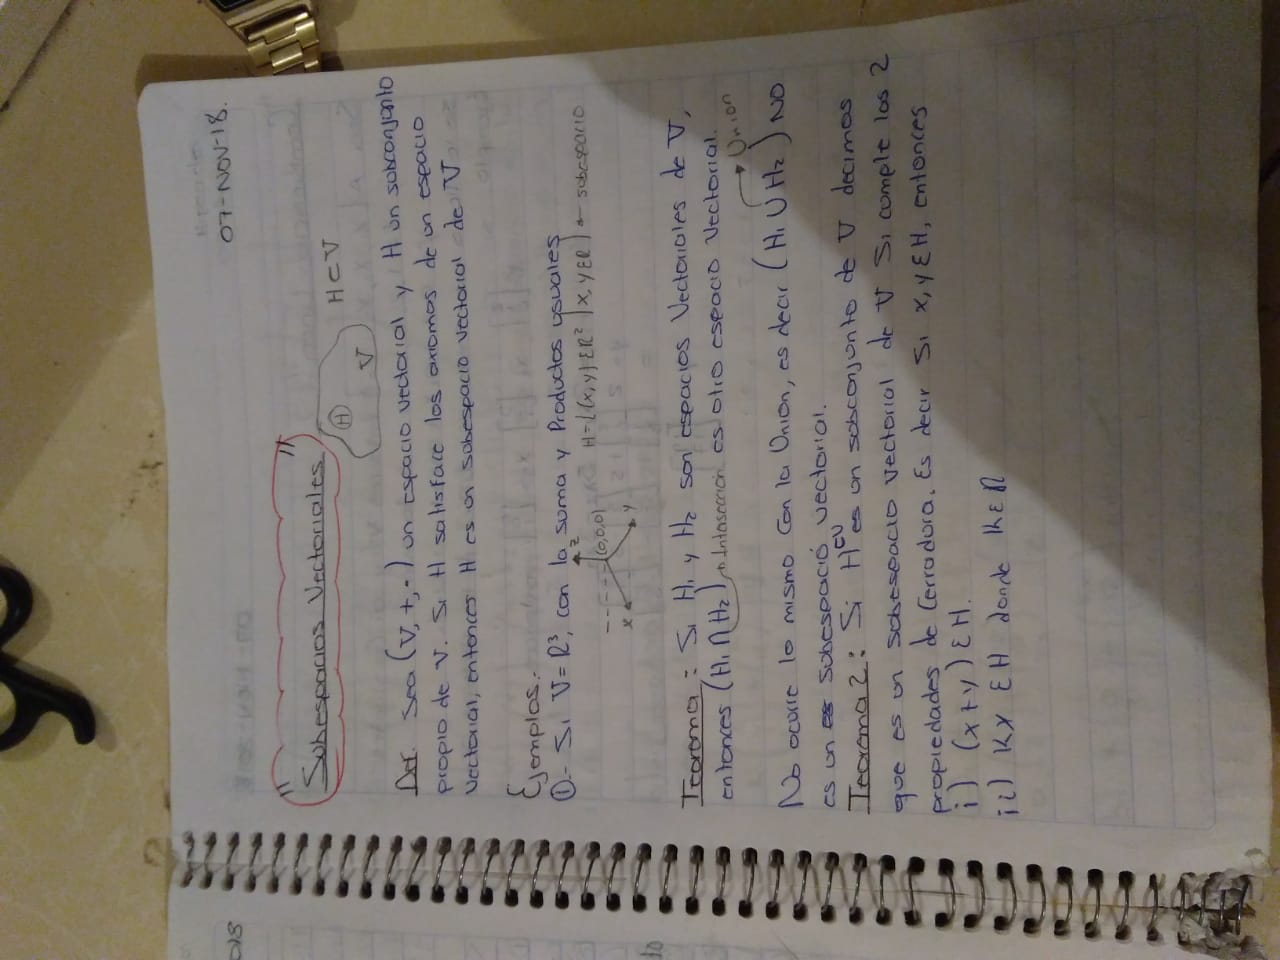 07-NOV-18.
"Subespacios Vectoriales"
H V H⊂V
Def. Sea (V, +, ·) un espacio vectorial y H un subconjunto
propio de V. Si H satisface los axiomas de un espacio
vectorial, entonces H es un subespacio vectorial de V
Ejemplos.
①.- Si V=R³, con la suma y Productos usuales
z
x (0,0,0) y H={(x,y)ɛR² | x,yɛR} ← subespacio
Teorema: Si H₁ y H₂ son espacios Vectoriales de V,
entonces (H₁∩H₂) → Intersección es otro espacio vectorial.
→ Union
No ocurre lo mismo con la Union, es decir (H₁∪H₂) NO
es un es subespacio vectorial.
Teorema 2: Si H⊂V es un subconjunto de V decimos
que es un subespacio vectorial de V Si cumple las 2
propiedades de Cerradura. Es decir Si x,yɛH, entonces
i) (x+y)ɛH.
ii) KxɛH donde KɛR
018
do